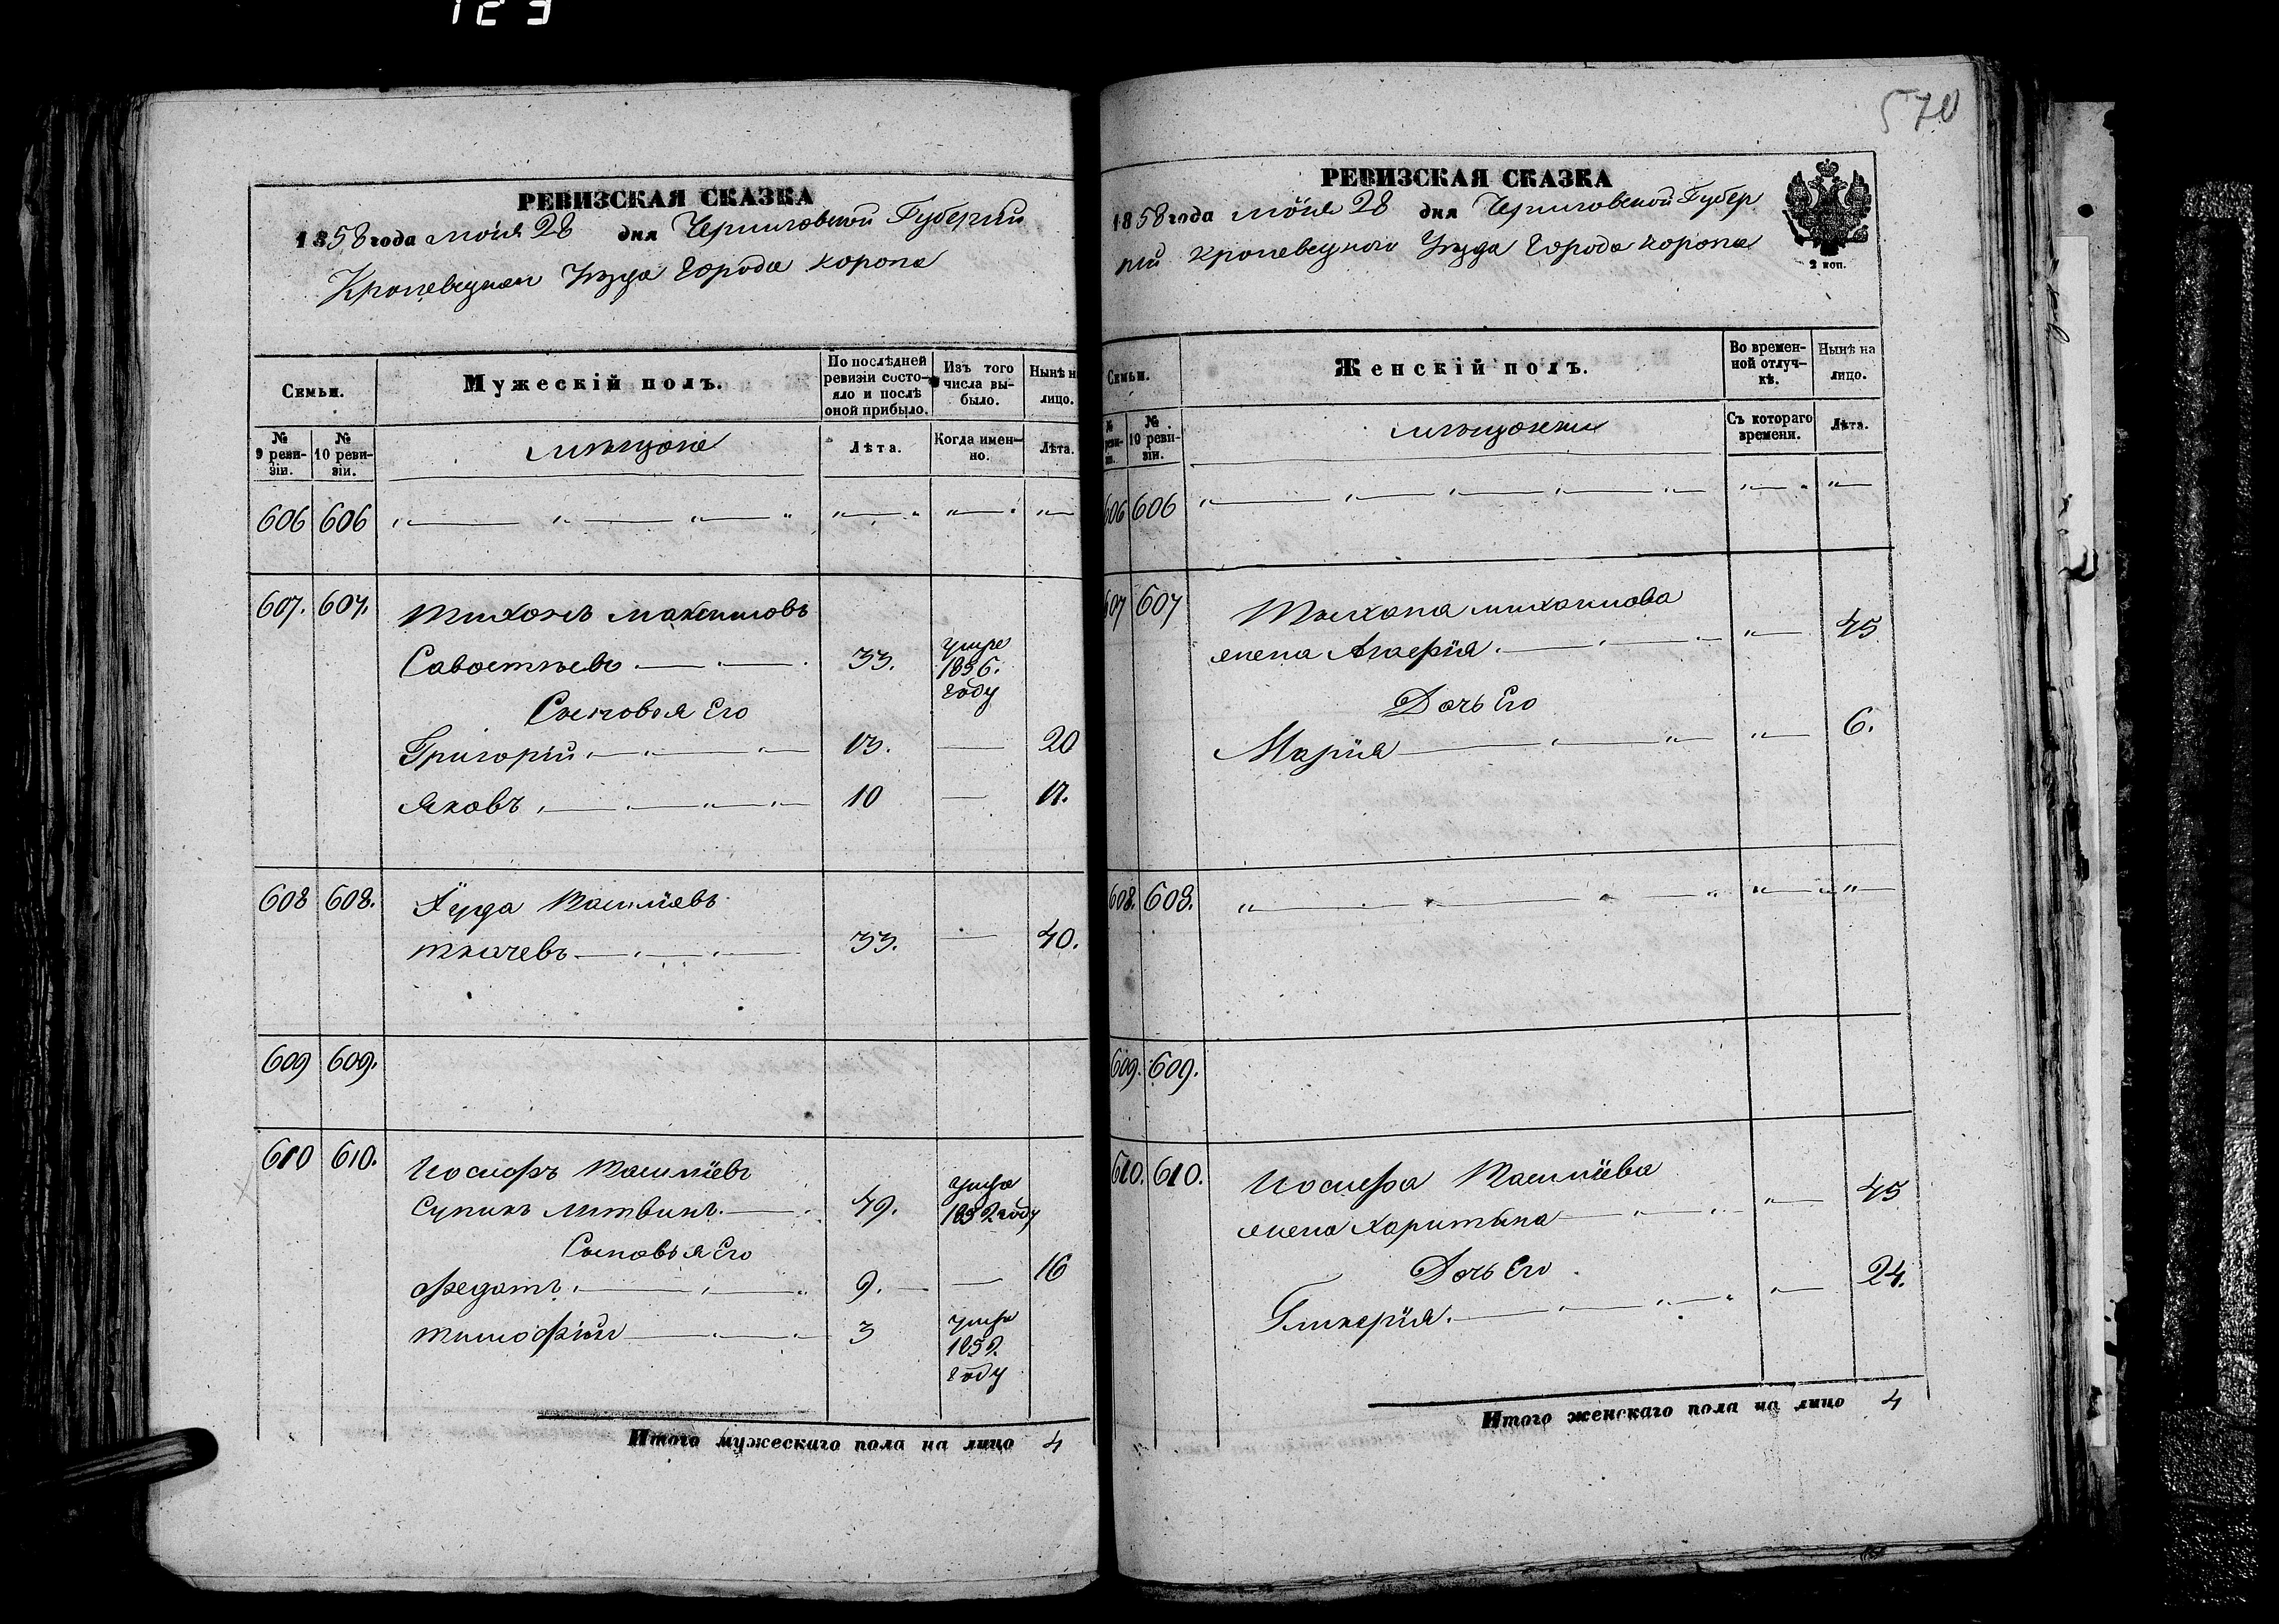 123
РЕВИЗСКАЯ СКАЗКА
1858 года Маія 28 дня Черниговской Губерніи
Кролевецкаго Уѣзда Города Коропа
Семьи.
Мужескій полъ.
По послѣдней ревизіи состояло и послѣ оной прибыло.
Изъ того числа выбыло.
Нынѣ н лицо.
№ 9 ревизіи.
№ 10 ревизіи.
мѣщане
Лѣта.
Когда именно.
Лѣта.
606 606 „ — „ — „ — „
607. 607. Тихонъ Максимовъ
Савостьевъ 33. умре 1856. году
Сыновья Его
Григорій 13. — 20
Яковъ 10 — 17.
608 608. Іуда Василіевъ
Ткачевъ 33. — 40.
609 609.
610 610. Иосифъ Василіевъ
Супикъ Литвинъ 49. умре 1852 году
Сыновья Его
Федотъ 9. — 16
Тимофій 3 умре 185 году
Итого мужескаго пола на лицо 4
570
РЕВИЗСКАЯ СКАЗКА
1858 года Маія 28 дня Черниговской Губер
ніи Кролевецкаго Уѣзда Города Коропа
2 коп.
Семьи.
Женскій полъ.
Во временной отлучкѣ.
Нынѣ на лицо.
№ реви
№ 10 ревизіи.
мѣщанки
Съ котораго времени.
Лѣта.
606 606 „ — „ — „ — „ — „
607 607 Тихона
жена Агафія „ — 45
Дочь Его
Марія „ — 6.
608. 608. „ — „ — „
609. 609.
610. 610. Иосифа Василіева
жена Харитина „ — 45
Дочь Его
Гликерія. „ — 24.
Итого женскаго пола на лицо 4